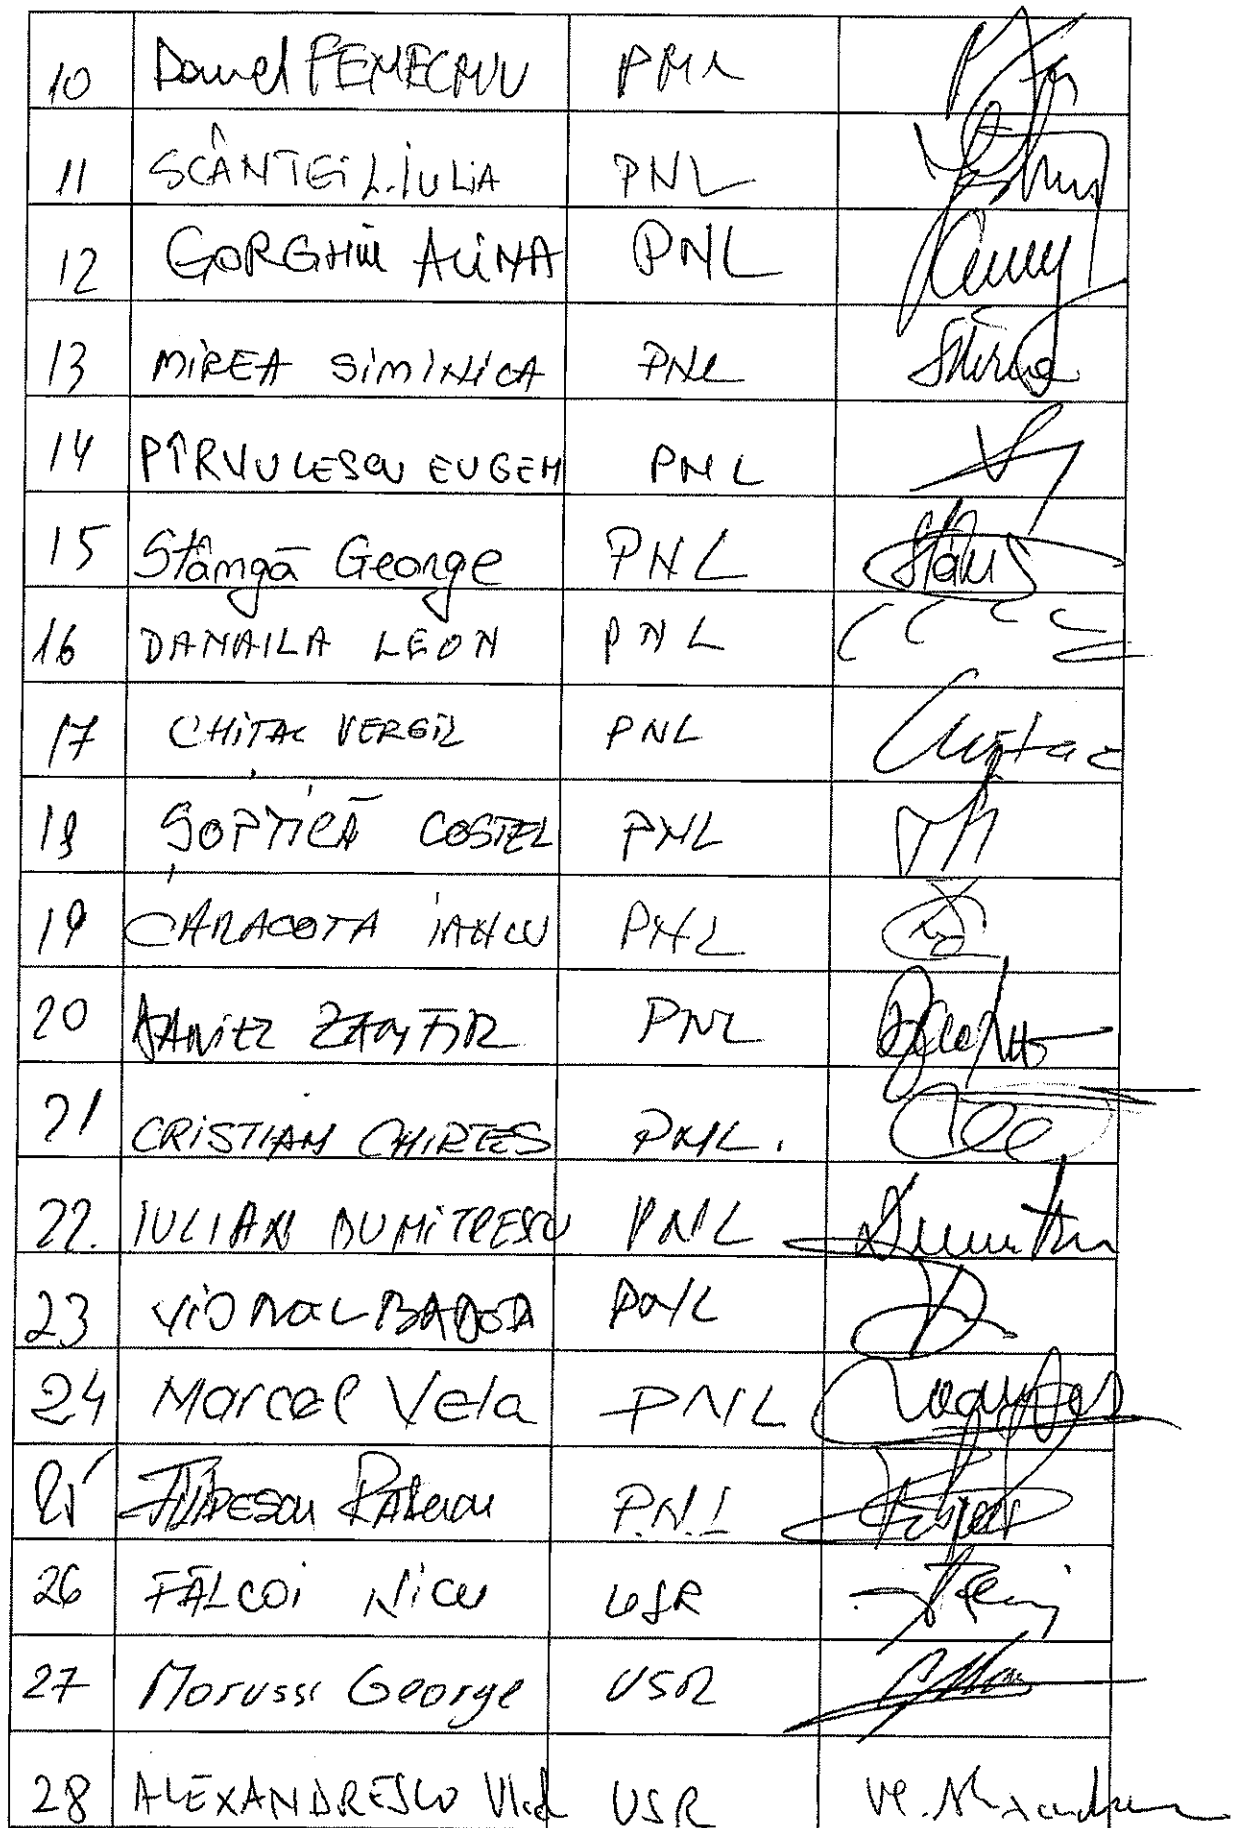 10 Daniel FENECHIU PNL
11 SCÂNTEI L. IULIA PNL
12 GORGHIU ALINA PNL
13 MIREA SIMINICA PNL
14 PÎRVULESCU EUGEN PNL
15 Stângă George PNL
16 DANAILA LEON PNL
17 CHITAC VERGIL PNL Chițac
18 ȘOPTICĂ COSTEL PNL
19 CARACOTA IANCU PNL
20 DANIEL ZAMFIR PNL
21 CRISTIAN CHIRTES PNL.
22. IULIAN DUMITRESCU PNL
23 VIOREL BADEA PNL
24 Marcel Vela PNL
25 FILIPESCU RĂSVAN P.N.L
26 FĂLCOI Nicu USR
27 Marussi George USR
28 ALEXANDRESCU Vlad USR